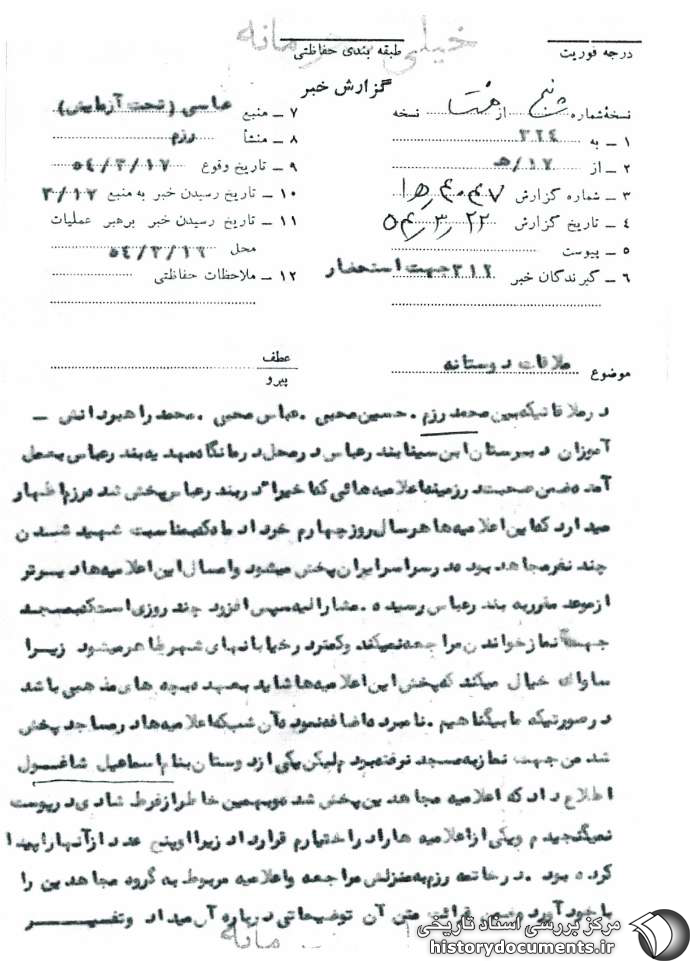 خیلی محرمانه
درجه فوریت
طبقه بندی حفاظتی
گزارش خبر
نسخه شماره پنج از هفت نسخه
۱ - به ۳۲۴
۲ - از ۱۷/ه
۳ - شماره گزارش
۴ - تاریخ گزارش ۲۲/۳/۵۴
۵ - پیوست
۶ - گیرندگان خبر ۳۱۲ جهت استحضار
۷ - منبع عباسی (تحت آزمایش)
۸ - منشأ رزم
۹ - تاریخ وقوع ۵۴/۳/۱۷
۱۰ - تاریخ رسیدن خبر به منبع ۳/۱۷
۱۱ - تاریخ رسیدن خبر برهبر عملیات
محل ۵۴/۳/۱۹
۱۲ - ملاحظات حفاظتی
موضوع ملاقات دوستانه
عطف
پیرو
در ملاقاتیکه بین محمد رزم . حسین محبی . عباس محبی . محمد راهبر دانش -
آموزان دبیرستان ابن سینا بندرعباس در محل درمانگاه مهدیه بندرعباس بعمل
آمده ضمن صحبت در زمینه اعلامیه هائی که اخیرا" در بندرعباس پخش شده رزم اظهار
میدارد که این اعلامیه ها هر سال روز چهارم خرداد ماه که بمناسبت شهید شدن
چند نفر مجاهد بوده در سراسر ایران پخش میشود و امسال این اعلامیه ها دیرتر
از موعد مقرر به بندرعباس رسیده . مشارالیه سپس افزود چند روزی است که بمسجد
جهت نماز خواندن مراجعه نمیکند و کمتر در خیابانهای شهر ظاهر میشود زیرا
ساواک خیال میکند که پخش این اعلامیه ها شاید بعهده بچه های مذهبی باشد
در صورتیکه ما بیگناهیم . نامبرده اضافه نمود آن شب که اعلامیه ها در مساجد پخش
شد من جهت نماز به مسجد نرفته بودم لیکن یکی از دوستان بنام اسماعیل شاغسول
اطلاع داد که اعلامیه مجاهدین پخش شده و بهمین خاطر از فرط شادی در پوست
نمیگنجیدم و یکی از اعلامیه ها را در اختیارم قرار داد زیرا او پنج عدد از آنها را پیدا
کرده بود . در خاتمه رزم به منزلش مراجعه و اعلامیه مربوط به گروه مجاهدین را
با خود آورد و ضمن قرائت متن آن توضیحاتی درباره آن میداد و تفسیر
مرکز بررسی اسناد تاریخی
historydocuments.ir